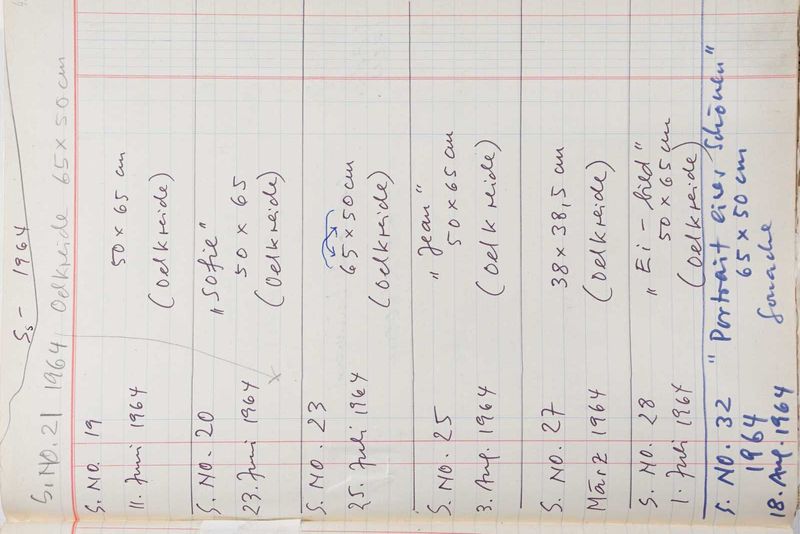 Ss - 1964
S. No. 21 1964, Oelkreide 65 x 50 cm
S. No. 19 50 x 65 cm
11. Juni 1964 (Oelkreide)
S. No. 20 "Sofie"
23. Juni 1964 50 x 65
(Oelkreide)
S. No. 23 65 x 50 cm
25. Juli 1964 (Oelkreide)
S. No. 25 "Jean"
50 x 65 cm
3. Aug. 1964 (Oelkreide)
S. No. 27 38 x 38,5 cm
März 1964 (Oelkreide)
S. No. 28 "Ei-bild"
50 x 65 cm
1. Juli 1964 (Oelkreide)
S. No. 32 "Portrait einer Schönen"
1964 65 x 50 cm
18. Aug. 1964 Gouache